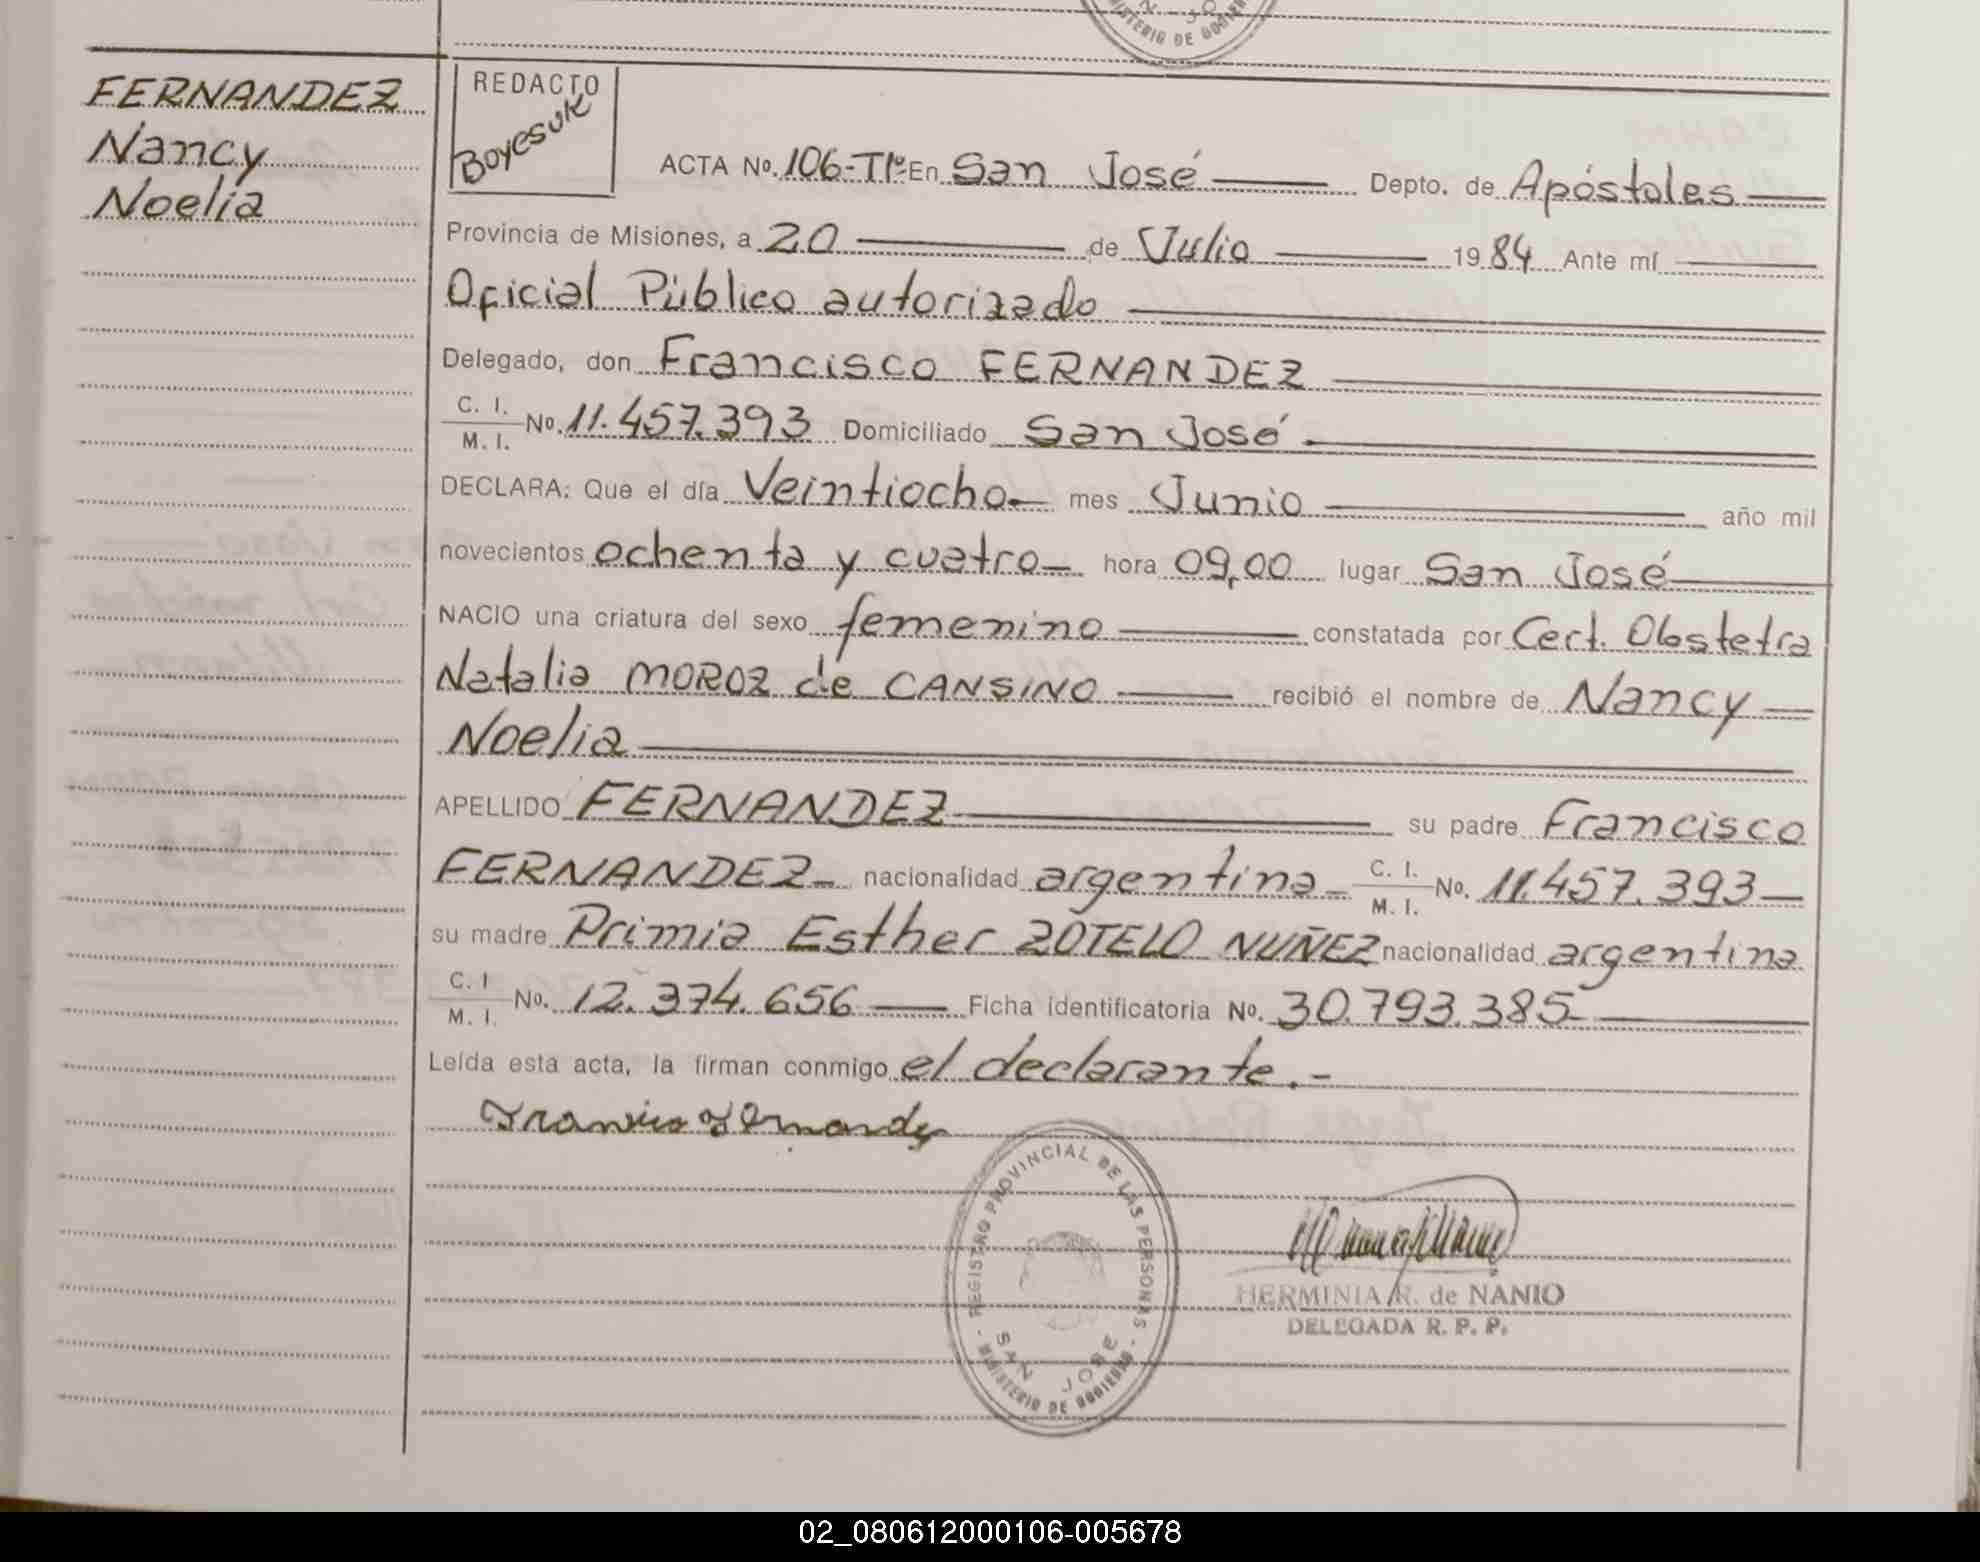 N - JO
MINISTERIO DE GOBIERNO
FERNANDEZ
Nancy
Noelia
REDACTO
Boyesuk
ACTA Nº. 106-Tº1º En San José Depto. de Apóstoles
Provincia de Misiones, a 20 de Julio 1984 Ante mí
Oficial Público autorizado
Delegado, don Francisco FERNANDEZ
C. I.
M. I. Nº. 11.457.393 Domiciliado San José
DECLARA: Que el día Veintiocho mes Junio año mil
novecientos ochenta y cuatro hora 09,00 lugar San José
NACIO una criatura del sexo femenino constatada por Cert. Obstetra
Natalia MOROZ de CANSINO recibió el nombre de Nancy
Noelia
APELLIDO FERNANDEZ su padre Francisco
FERNANDEZ nacionalidad argentina C. I. M. I. Nº. 11.457.393
su madre Primia Esther ZOTELO NUÑEZ nacionalidad argentina
C. I M. I. Nº. 12.374.656 Ficha identificatoria Nº. 30.793.385
Leída esta acta, la firman conmigo el declarante.-
Francisco Fernandez
REGISTRO PROVINCIAL DE LAS PERSONAS
SAN JOSE
MINISTERIO DE GOBIERNO
HERMINIA R. de NANIO
DELEGADA R. P. P.
02_080612000106-005678